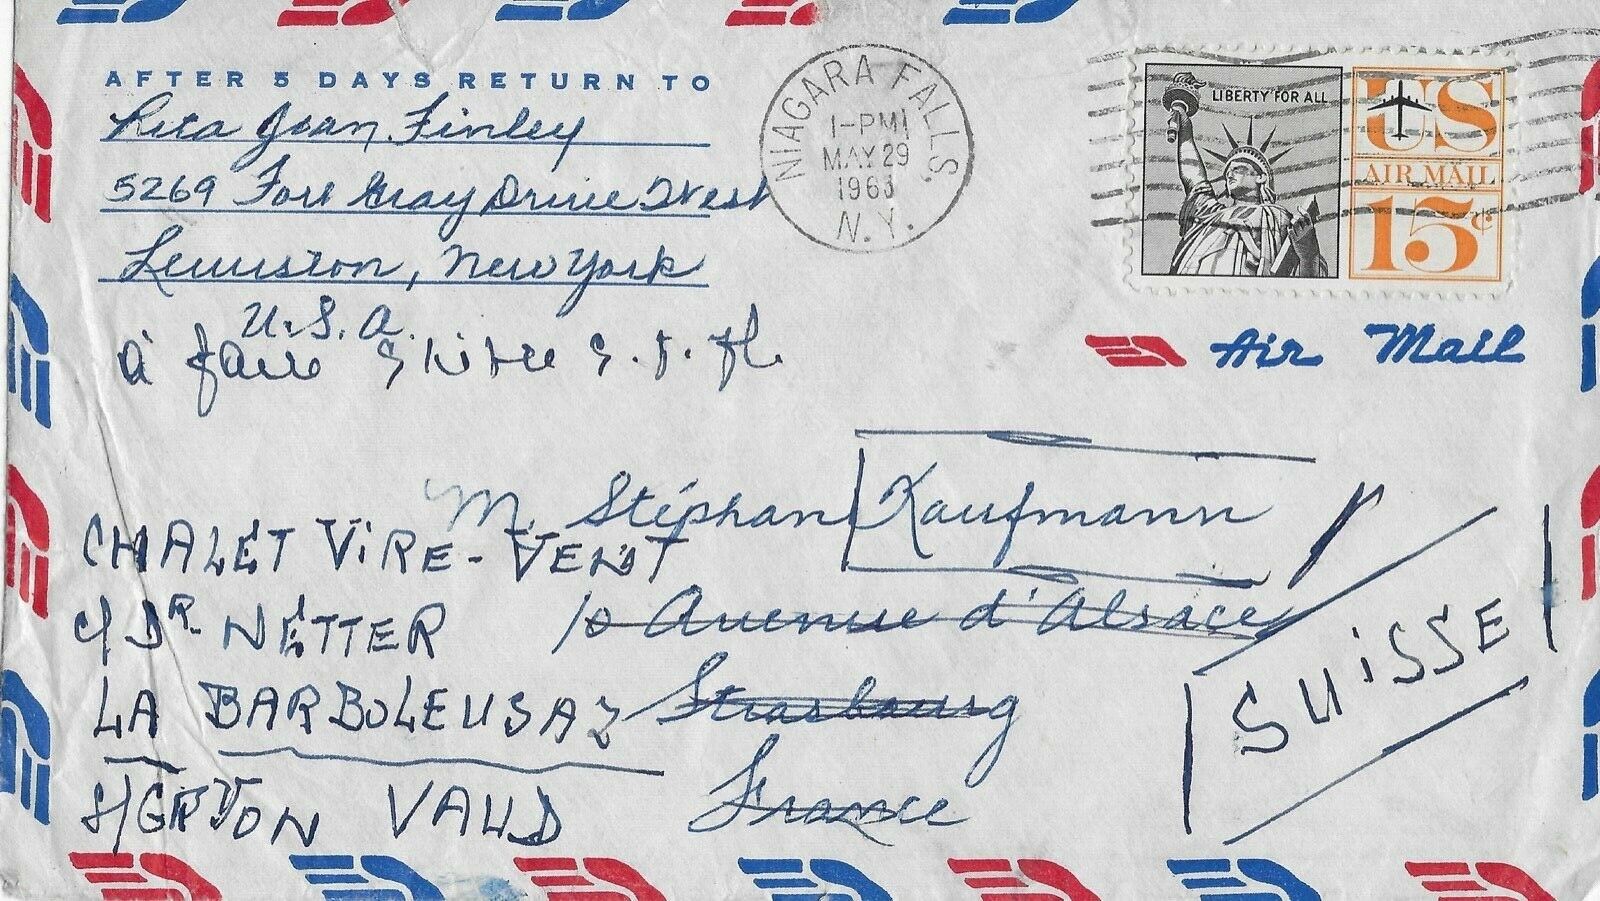 AFTER 5 DAYS RETURN TO
Rita Joan Finley
5269 Fort Gray Drive West
Lewiston, New York
U.S.A.
à faire suivre s.v.pl.
NIAGARA FALLS, N.Y.
1-PM
MAY 29
1963
LIBERTY FOR ALL
US
AIR MAIL
15¢
Air Mail
M. Stéphan Kaufmann
10 Avenue d'Alsace
Strasbourg
France
CHALET VIRE-VENT
c/ DR. NETTER
LA BARBOLEUSAZ
S/GRYON VAUD
SUISSE